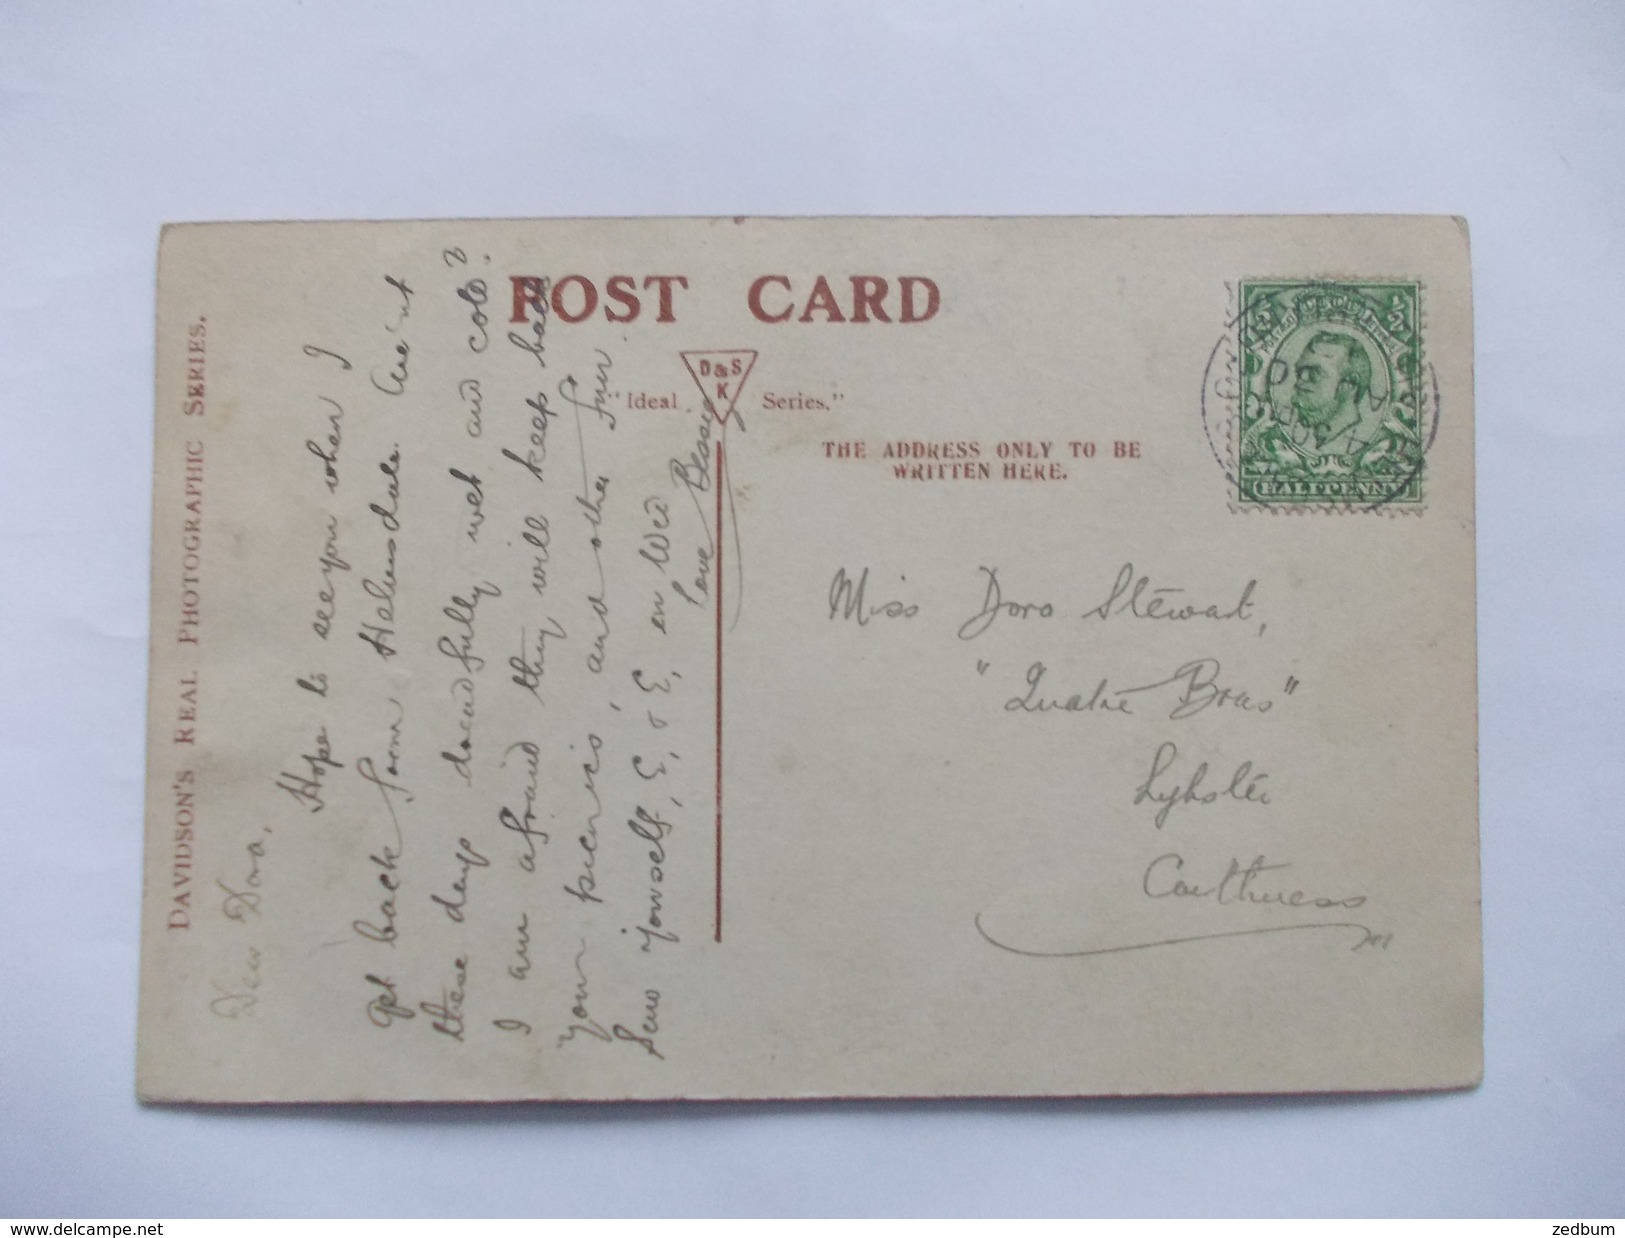 DAVIDSON'S REAL PHOTOGRAPHIC SERIES.
POST CARD
"Ideal
D & S
K
Series."
THE ADDRESS ONLY TO BE
WRITTEN HERE.
HALFPENNY
Dear Dora,
Hope to see you when I
get back from Helmsdale. Arent
these days dreadfully wet and cold?
I am afraid they will keep back
your picnics, and other fun.
Seeing yourself, E, & E, en Wed
Love Bessie
Miss Dora Stewart,
"Quatre Bras"
Lybster
Caithness
www.delcampe.net
zedbum